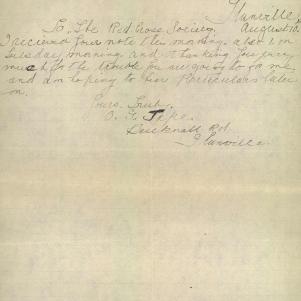 Glanville,
August 10.
To The Red Cross Society,
I recieved your note this morning, also on
Tuesday morning and thanking you very
much for the trouble you are going to for me
and am hoping to hear Particulars later
on.
Yours Truly.
O. G. Jape.
Rd.
Glanville.